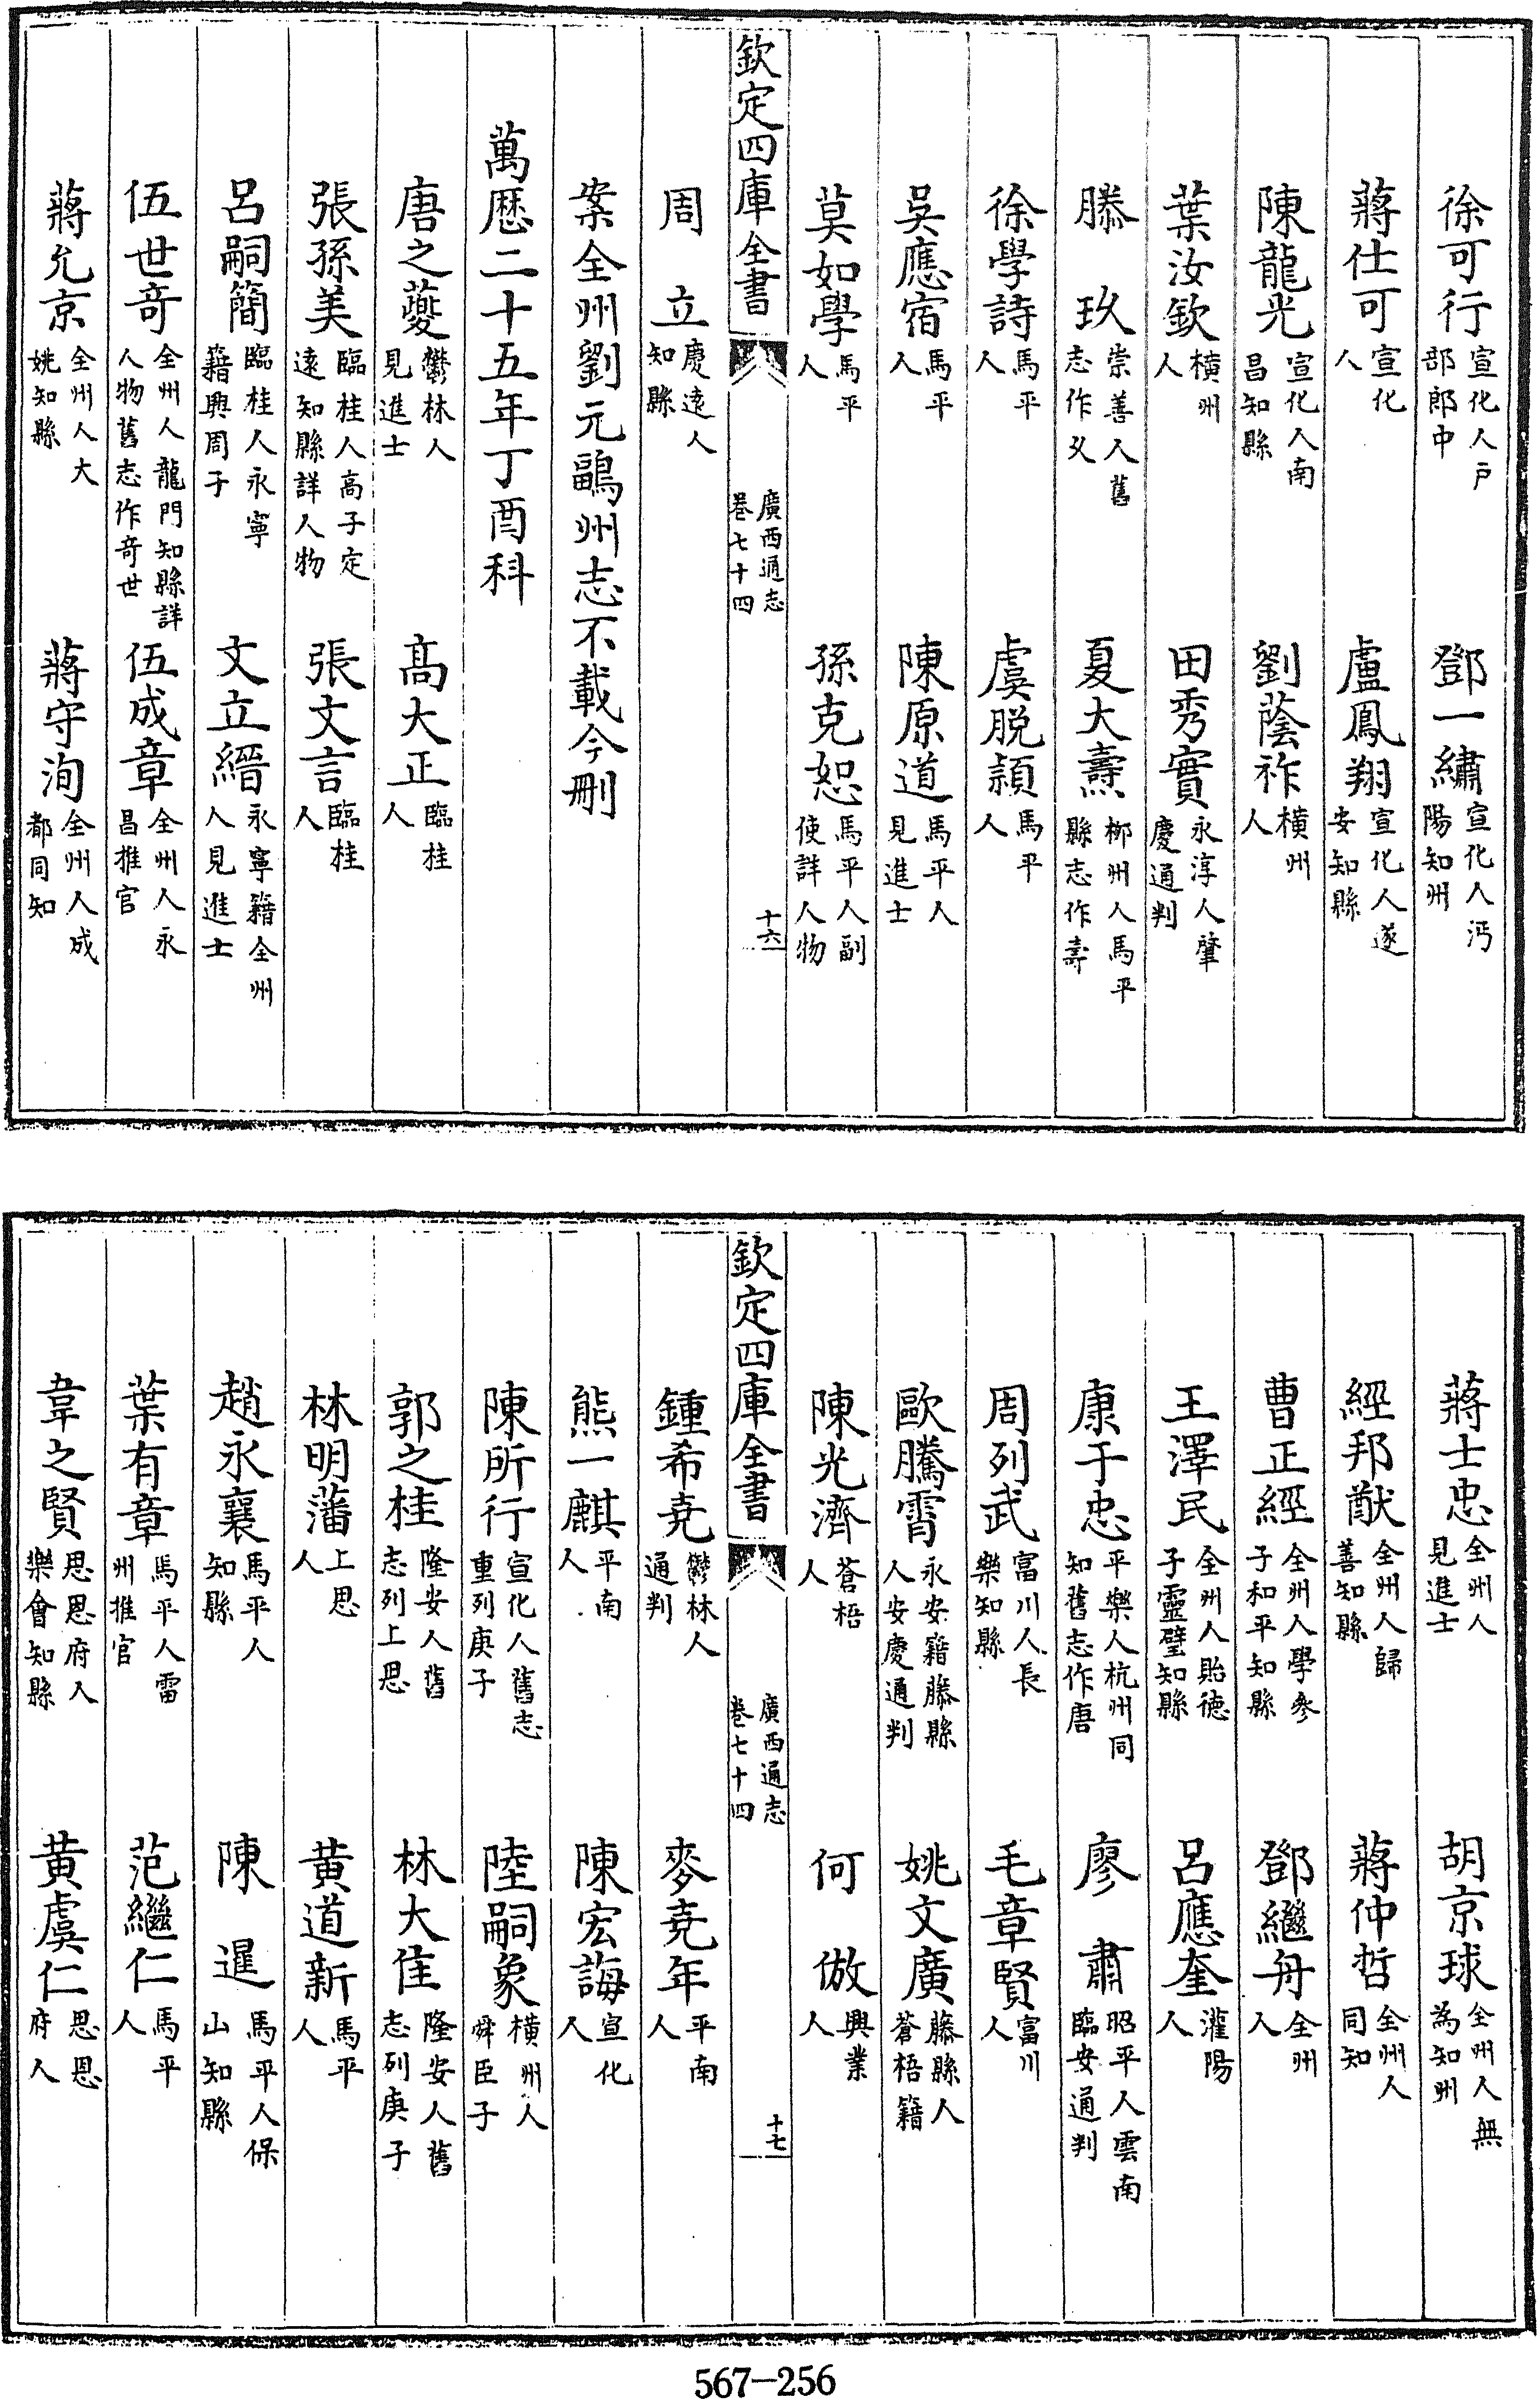 徐可行宣化人戶部郎中　鄧一繡宣化人沔陽知州
蔣仕可宣化人　盧鳳翔宣化人遂安知縣
陳龍光宣化人南昌知縣　劉蔭祚橫州人
葉汝欽橫州人　田秀實永淳人肇慶通判
滕玖崇善人舊志作乂　夏大燾柳州人馬平縣志作壽
徐學詩馬平人　虞脱穎馬平人
吳應宿馬平人　陳原道馬平人見進士
莫如學馬平人　孫克恕馬平人副使詳人物
欽定四庫全書　廣西通志卷七十四　十六
周立慶遠人知縣
案全州劉元鷗州志不載今刪
萬歴二十五年丁酉科
唐之夔鬱林人見進士　高大正臨桂人
張孫美臨桂人高子定遠知縣詳人物　張文言臨桂人
呂嗣簡臨桂人永寧籍興周子　文立縉永寧籍全州人見進士
伍世竒全州人龍門知縣詳人物舊志作竒世　伍成章全州人永昌推官
蔣允京全州人大姚知縣　蔣守洵全州人成都同知
蔣士忠全州人見進士　胡京球全州人無為知州
經邦猷全州人歸善知縣　蔣仲哲全州人同知
曹正經全州人學參子和平知縣　鄧繼舟全州人
王澤民全州人貽德子靈璧知縣　呂應奎灌陽人
康于忠平樂人杭州同知舊志作唐　廖肅昭平人雲南臨安通判
周列武富川人長樂知縣　毛章賢富川人
歐騰霄永安籍藤縣人安慶通判　姚文廣藤縣人蒼梧籍
陳光濟蒼梧人　何倣興業人
欽定四庫全書　廣西通志卷七十四　十七
鍾希堯鬱林人通判　麥堯年平南人
熊一麒平南人　陳宏誨宣化人
陳所行宣化人舊志重列庚子　陸嗣象橫州人舜臣子
郭之桂隆安人舊志列上思　林大隹隆安人舊志列庚子
林明藩上思人　黃道新馬平人
趙永襄馬平人知縣　陳暹馬平人保山知縣
葉有章馬平人雷州推官　范繼仁馬平人
韋之賢思恩府人樂會知縣　黃虞仁思恩府人
567—256